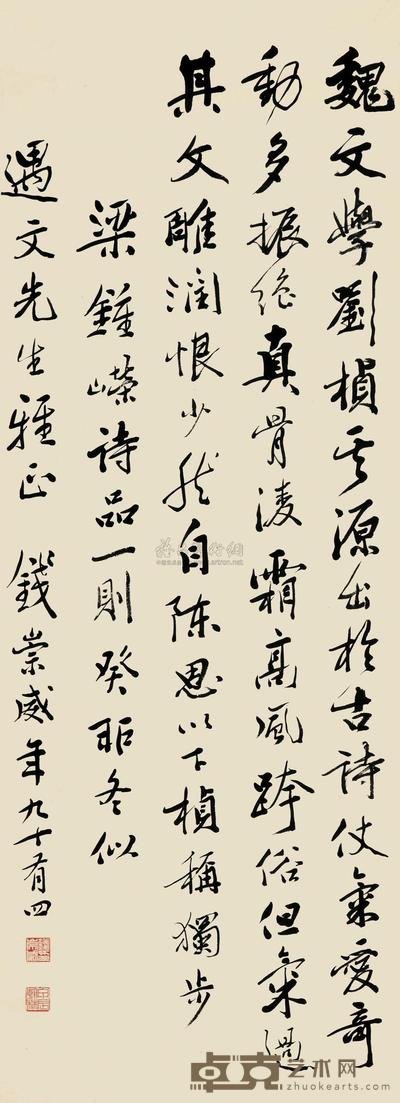 魏文學劉楨其源出於古詩仗氣愛奇
動多振絕真骨凌霜高風跨俗但氣過
其文雕潤恨少然自陳思以下楨稱獨步
梁鍾嶸詩品一則癸卯冬似
遇文先生雅正 錢崇威年九十有四
卓克艺术网
www.zhuokearts.com